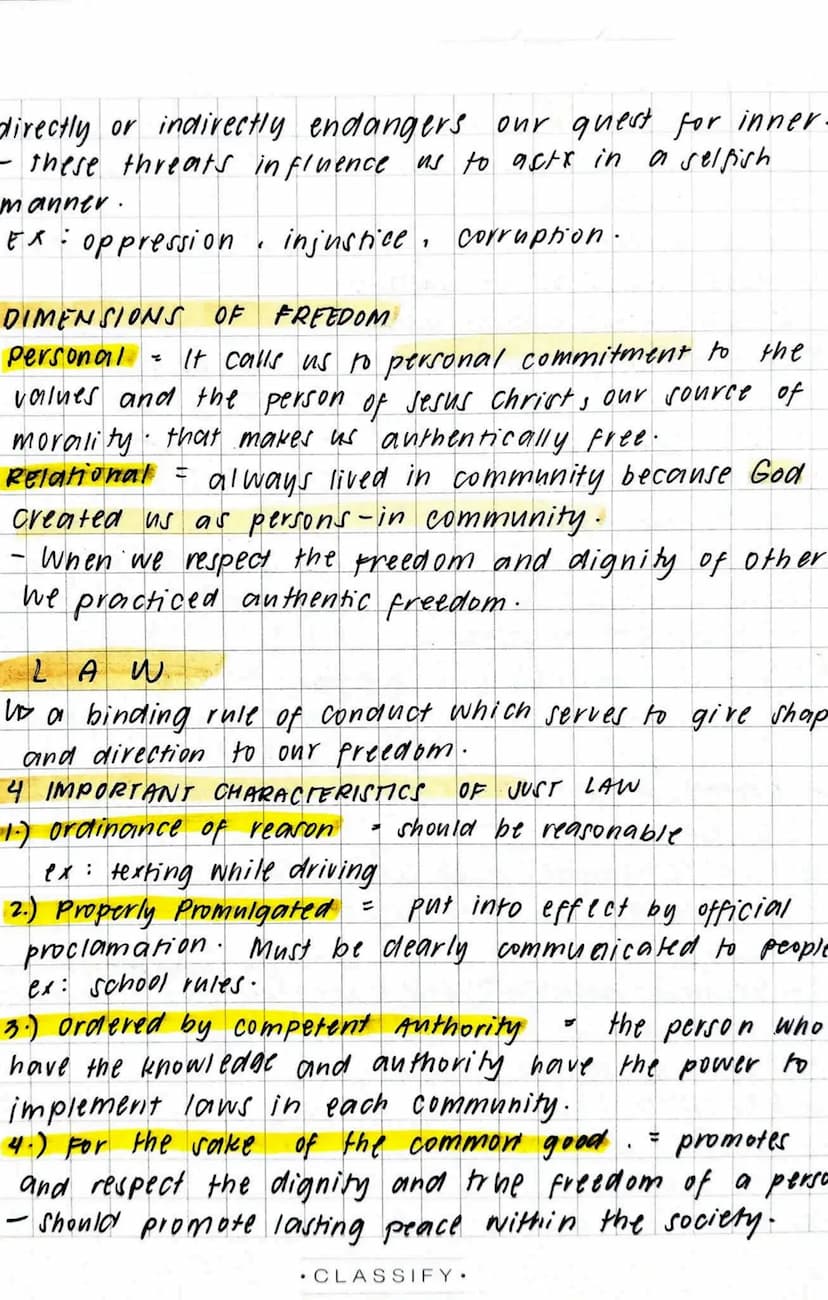 directly or indirectly endangers our quest for inner-
- these threats influence us to act in a selfish
manner.
Ex : oppression , injustice , corruption.
DIMENSIONS OF FREEDOM
Personal = It calls us to personal commitment to the
values and the person of Jesus Christ, our source of
morality. that makes us authentically free.
RElational = always lived in community because God
created us as persons-in community.
- When we respect the freedom and dignity of other
we practiced authentic freedom.
LAW
↳ a binding rule of conduct which serves to give shap
and direction to our freedom.
4 IMPORTANT CHARACTERISTICS OF JUST LAW
1.) Ordinance of reason = should be reasonable
ex : texting while driving
2.) Properly Promulgated = put into effect by official
proclamation. Must be clearly communicated to people
ex: school rules.
3.) Ordered by competent Authority = the person who
have the knowledge and authority have the power to
implement laws in each community.
4.) For the sake of the common good . = promotes
and respect the dignity and true freedom of a perso
- should promote lasting peace within the society.
• CLASSIFY •